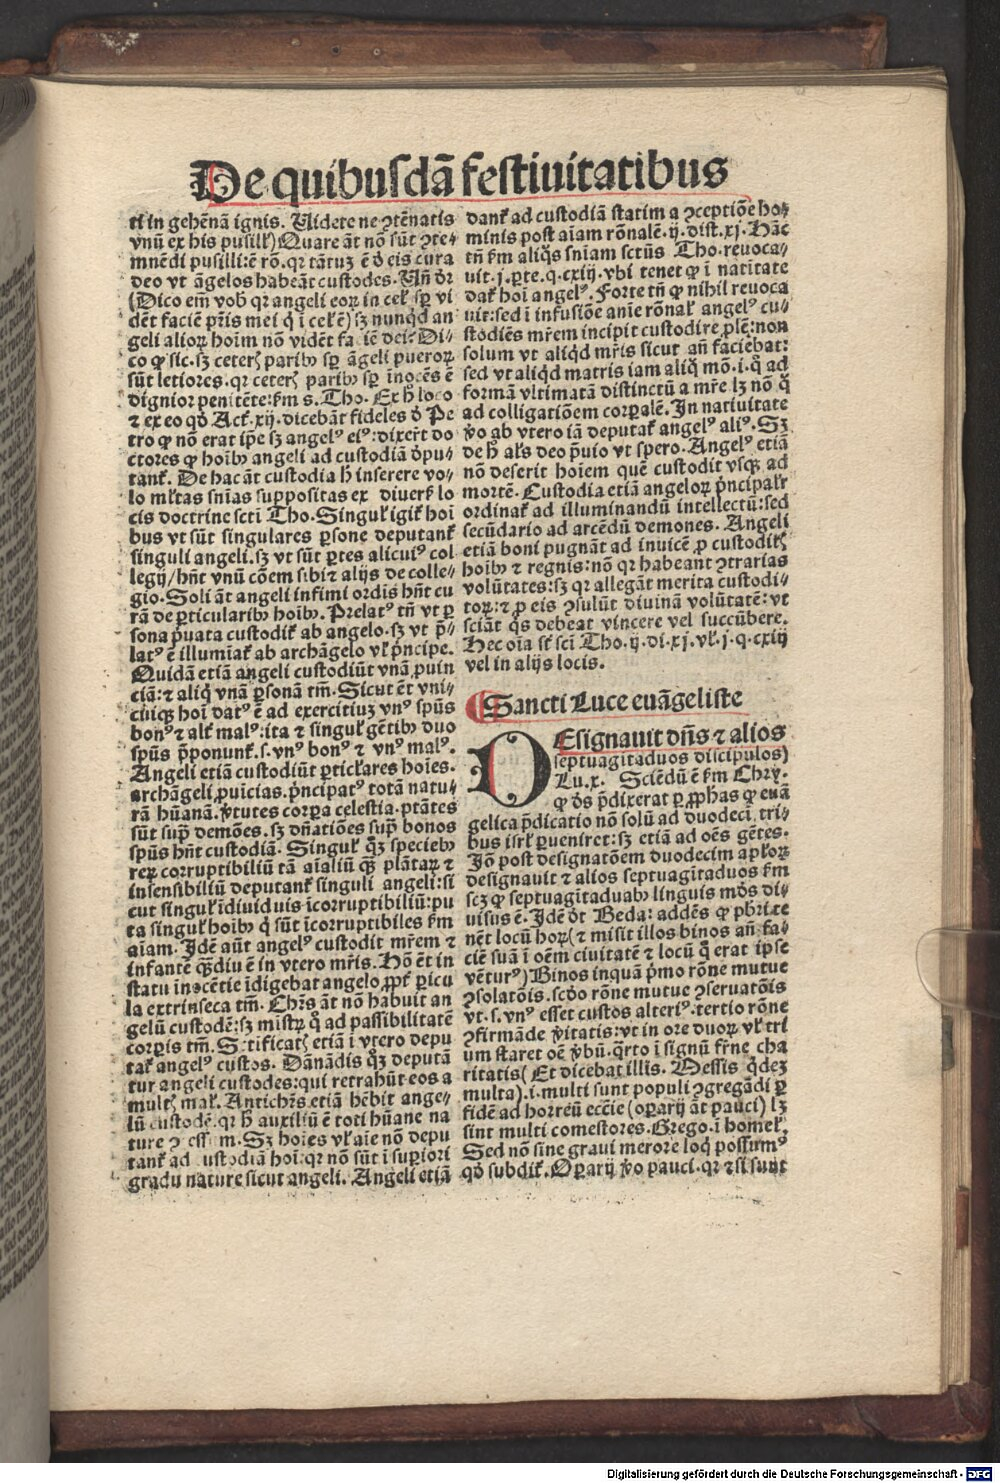 De quibusdã festiuitatibus
ti in gehẽnã ignis. Uidete ne ↄtẽnatis
vnũ ex his pusillꝭ) Quare ãt nõ sũt ↄte-
mnẽdi pusilli: ẽ rõ. qꝛ tãtuʒ ẽ d̾ eis cura
deo vt ãgelos habeãt custodes. Uñ d̾r
(Dico em̃ vob̾ qꝛ angeli eoꝝ in cel̾ sꝑ vi
dẽt faciẽ pr̃is mei q̇ ĩ cel̾ ẽ) sʒ nunqd̾ an
geli alioꝝ hoĩm nõ vidẽt fa iẽ dei: Di-
co ꝙ sic. sʒ ceterꝭ parib⁹ sꝑ ãgeli pueroꝝ
sũt letiores. qꝛ ceterꝭ parib⁹ sꝑ ĩnocẽs ẽ
dignior penitẽte: f̾m s. Tho. Ex h̾ loco
⁊ ex eo qd̾ Act̾. xij. dicebãt fideles d̾ Pe
tro ꝙ nõ erat ip̃e sʒ angel⁹ ei⁹: dixer̃t do
ctores ꝙ hoĩb⁹ angeli ad custodiã d̾pu-
tanť. De hac ãt custodia h̾ inserere vo-
lo ml̾tas sñias suppositas ex diuers̾ lo
cis doctrine sc̃ti Tho. Singul̾ igit̾ hoĩ
bus vt sũt singulares ꝑsone deputanť
singuli angeli. sʒ vt sũt ꝑtes alicui⁹ col
legij/ hñt vnũ cõem sibi ⁊ alijs de colle-
gio. Soli ãt angeli infimi ordĩs hñt cu
rã de ꝑticularib⁹ hoĩb⁹. Prelat⁹ tñ vt ꝑ
sona p̾uata custodiť ab angelo. sʒ vt p̃-
lat⁹ ẽ illumĩať ab archãgelo vl̾ p̾ncipe.
Quidã etiã angeli custodiũt vnã ꝓuin
ciã: ⁊ aliq̇ vnã ꝑsonã tm̃. Sicut ẽt vni-
cuiqꝫ hoĩ dat⁹ ẽ ad exercitiuʒ vn⁹ spũs
bon⁹ ⁊ alt̾ mal⁹: ita ⁊ singul̾ gẽtib⁹ duo
spũs p̾ponunť. s. vn⁹ bon⁹ ⁊ vn⁹ mal⁹.
Angeli etiã custodiũt ꝑticl̾ares hoĩes.
archãgeli ꝓuĩcias. p̾ncipat⁹ totã natu-
rã hũanã. v̾tutes corꝑa celestia. ptãtes
sũt sup̃ demões. sʒ dñatiões sup̃ bonos
spũs hñt custodiã. Singul̾ qʒ̾ specieb⁹
reꝝ corruptibiliũ tã aĩaliũ qꝫ̃ plãtaꝝ ⁊
insensibiliũ deputanť singuli angeli: si
cut singul̾ ĩdiuiduis ĩcorruptibiliũ: pu
ta singul̾ hoĩb⁹ q̇ sũt ĩcorruptibiles f̾m
aĩam. Idẽ aũt angel⁹ custodit mr̃em ⁊
infantẽ qꝫ̃diu ẽ in vtero mr̃is. Hõ ẽt in
statu ĩnocẽtie ĩdigebat angelo ꝓpt̾ ꝑicu
la extrinseca tm̃. Chr̃s ãt nõ habuit an
gelũ custodẽ: sʒ mĩstꝝ q̇ ad passibilitatẽ
corꝑis tm̃. S tificatꝭ etiã ĩ vtero depu
tať angel⁹ custos. Dãnãdis qʒ̾ deputã
tur angeli custodes: qui retrahũt eos a
multꝭ mal̾. Antichr̃s etiã hẽbit ange-
lũ custodẽ. qꝛ h̾ auxiliũ ẽ toti hũane na
ture ↄ ess m. Sʒ hoĩes vl̾ aĩe nõ depu
tanť ad ustodiã hoĩ: qꝛ nõ sũt ĩ suꝑiori
gradu nature sicut angeli. Angeli etiã
danť ad custodiã statim a ↄceptiõe ho-
minis post aĩam rõnalẽ. ij. dist. xj. Hãc
tñ f̾m aliq̇s sñiam sctũs Tho. reuoca-
uit. j. ꝑte. q. cxiij. vbi tenet ꝙ ĩ natĩtate
dať hoĩ angel⁹. Forte tñ ꝙ nihil reuoca
uit: sed ĩ infusiõe anie rõnal̾ angel⁹ cu-
stodiẽs mr̃em incipit custodire ꝓlẽ: non
solum vt aliqd̾ mr̃is sicut añ faciebat:
sed vt aliqd̾ matris iam aliq̇ mõ. i. q̇ ad
formã vltimatã distinctũ a mr̃e lʒ nõ q̇
ad colligatiõem corꝑalẽ. In natiuitate
v̾o ab vtero iã deputať angel⁹ ali⁹. Sʒ
de h̾ al̾s deo p̾uio vt spero. Angel⁹ etiã
nõ deserit hoĩem quẽ custodit vsqꝫ ad
mortẽ. Custodia etiã angeloꝝ p̾ncipal̾r
ordinať ad illuminandũ intellectũ: sed
secũdario ad arcẽdũ demones. Angeli
etiã boni pugnãt ad inuicẽ ꝓ custoditꝭ
hoĩb⁹ ⁊ regnis: nõ qꝛ habeant ↄtrarias
volũtates: sʒ qꝛ allegãt merita custodi-
toꝝ: ⁊ ꝓ eis ↄsulũt diuinã volũtatẽ: vt
sciãt q̇s debeat vincere vel succũbere.
Hec oĩa sť sc̃i Tho. ij. di. xj. vl̾. j. q. cxiij
vel in alijs locis.
Sancti Luce euãgeliste
DEsignauit dñs ⁊ alios
septuagitaduos discipulos)
Lu. x. Sciẽdũ ẽ f̾m Chry.
ꝙ d̾s p̃dixerat ꝑ ꝓphas ꝙ euã
gelica p̃dicatio nõ solũ ad duodecĩ tri-
bus isrl̾ ꝑueniret: sʒ etiã ad oẽs gẽtes.
Jõ post designatõem duodecim apl̾oꝝ
designauit ⁊ alios septuagĩtaduos f̾m
scʒ ꝙ septuagĩtaduab⁹ linguis mõs di-
uisus ẽ. Idẽ d̾t Beda: addẽs ꝙ pb̾ri te
nẽt locũ hoꝝ (⁊ misit illos binos añ fa-
ciẽ suã ĩ oẽm ciuitatẽ ⁊ locũ q̇ erat ipse
vẽtur⁹) Binos inquã p̾mo rõne mutue
ↄsolatõis. sc̾do rõne mutue ↄseruatõis
vt. s. vn⁹ esset custos alteri⁹. tertio rõne
ↄfirmãde v̾itatis: vt in ore duoꝝ vl̾ tri
um staret oẽ v̾bũ. q̾rto ĩ signũ fr̃ne cha
ritatis (Et dicebat illis. Messis q̇deʒ
multa). i. multi sunt populi ↄgregãdi ꝑ
fidẽ ad horreũ ecc̃ie (oꝑarij ãt pauci) lʒ
sint multi comestores. Grego. ĩ homel̾.
Sed nõ sine graui merore loq̇ possum⁹
qd̾ subdiť. Oꝑarij v̾o pauci. qꝛ ⁊si sunt
Digitalisierung gefördert durch die Deutsche Forschungsgemeinschaft - DFG